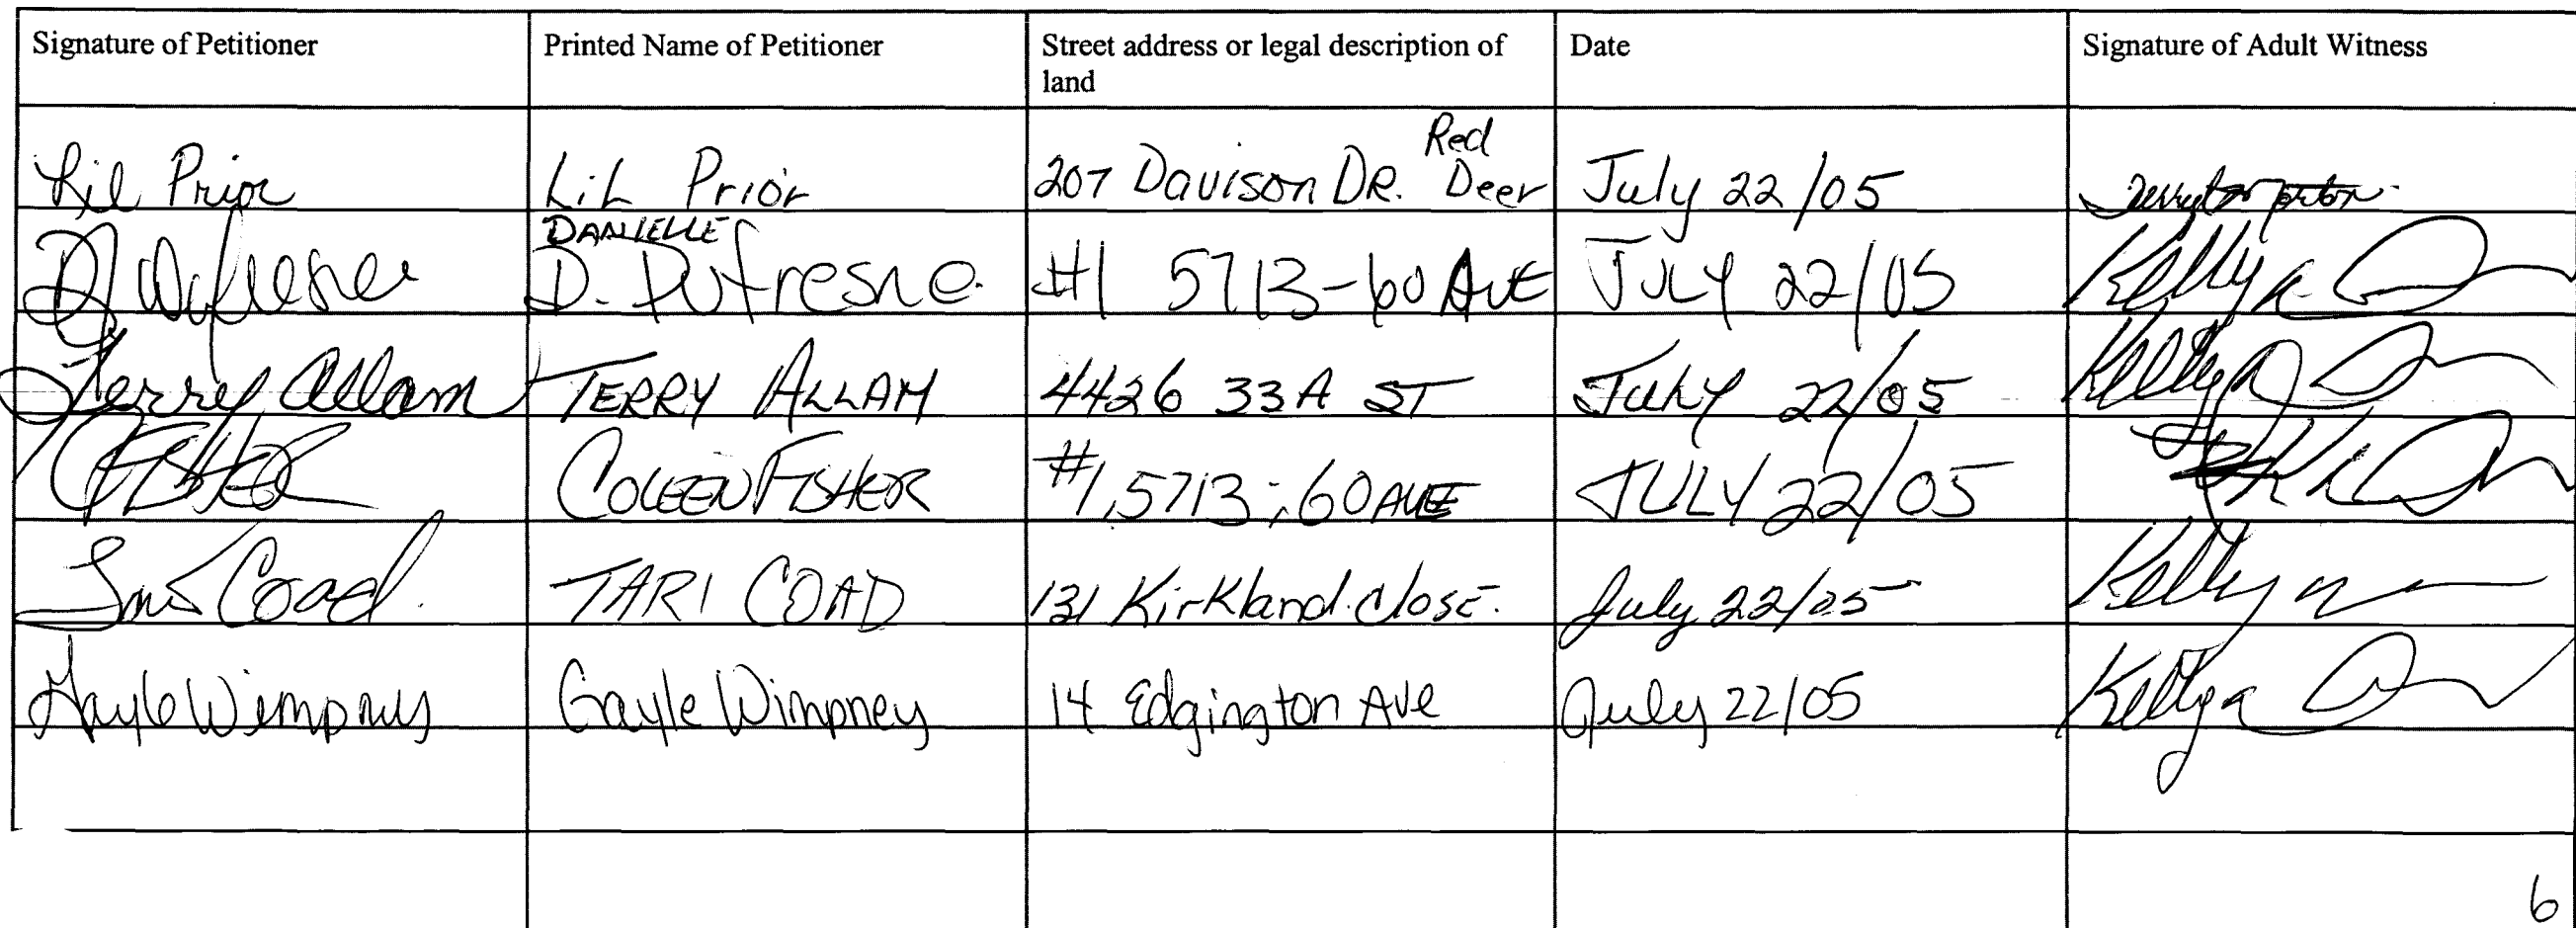 Signature of Petitioner Printed Name of Petitioner Street address or legal description of land Date Signature of Adult Witness
Lil Prior LiL Prior 207 Davison DR. Red Deer July 22/05
D Dufresne DANIELLE D. Dufresne #1 5713-60 AVE JULY 22/05 Kelly
Terry Allam TERRY ALLAM 4426 33A ST July 22/05 Kelly
CFisher COLEEN FISHER #1, 5713-60 AVE JULY 22/05
Tari Coad TARI COAD 131 Kirkland Close. July 22/05 Kelly
Gayle Wimpney Gayle Wimpney 14 Edgington Ave July 22/05 Kelly
6